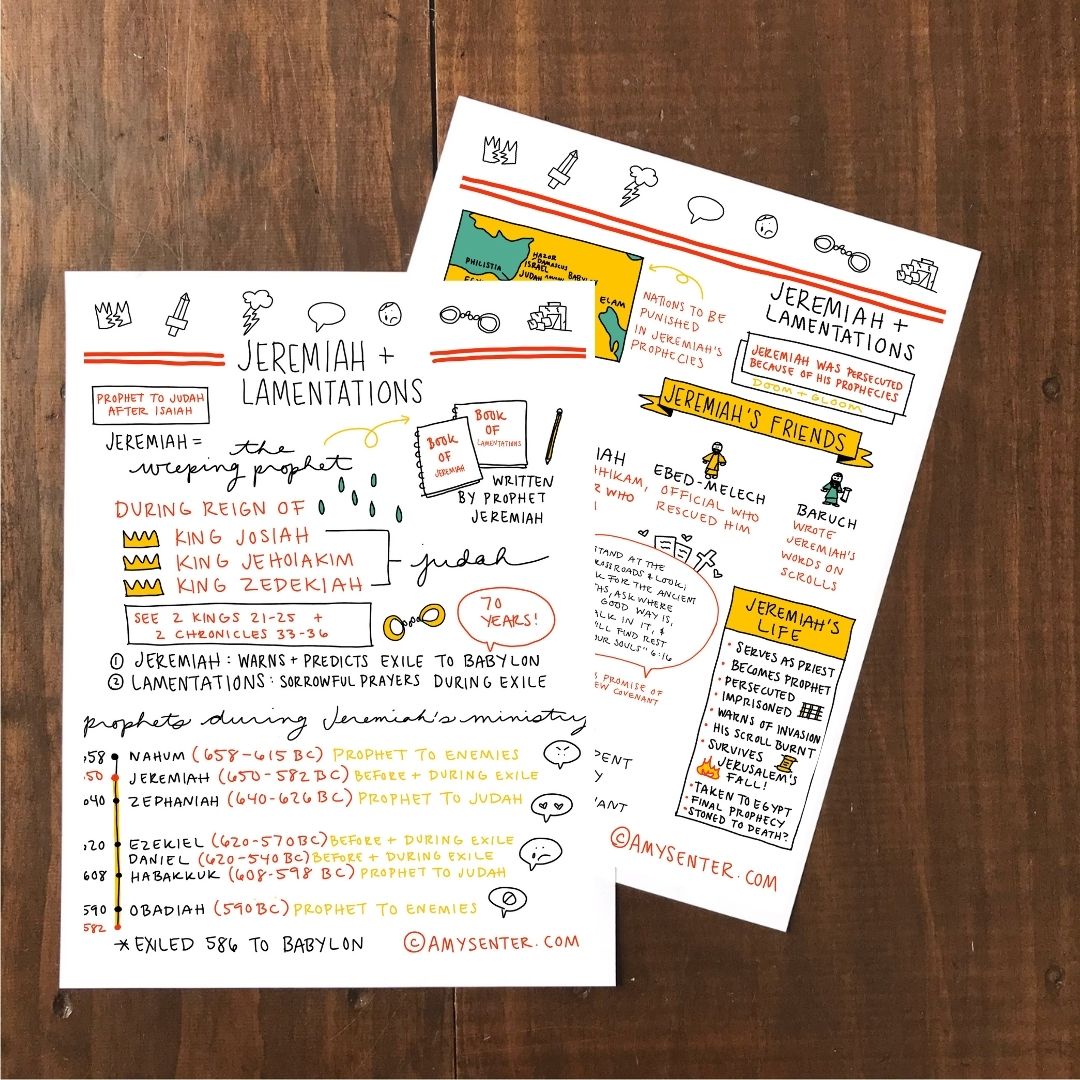 JEREMIAH +
LAMENTATIONS
PROPHET TO JUDAH
AFTER ISAIAH
JEREMIAH =
the
weeping prophet
BOOK
OF
JEREMIAH
BOOK
OF
LAMENTATIONS
WRITTEN
BY PROPHET
JEREMIAH
DURING REIGN OF
KING JOSIAH
KING JEHOIAKIM
KING ZEDEKIAH
judah
SEE 2 KINGS 21-25 +
2 CHRONICLES 33-36
70
YEARS!
① JEREMIAH: WARNS + PREDICTS EXILE TO BABYLON
② LAMENTATIONS: SORROWFUL PRAYERS DURING EXILE
prophets during Jeremiah's ministry
58 NAHUM (658-615 BC) PROPHET TO ENEMIES
50 JEREMIAH (650-582 BC) BEFORE + DURING EXILE
40 ZEPHANIAH (640-626 BC) PROPHET TO JUDAH
20 EZEKIEL (620-570 BC) BEFORE + DURING EXILE
DANIEL (620-540 BC) BEFORE + DURING EXILE
608 HABAKKUK (608-598 BC) PROPHET TO JUDAH
590 OBADIAH (590 BC) PROPHET TO ENEMIES
582
* EXILED 586 TO BABYLON
© AMYSENTER.COM
JEREMIAH +
LAMENTATIONS
PHILISTIA
HAZOR
DAMASCUS
ISRAEL
JUDAH
BABYLON
ELAM
NATIONS TO BE
PUNISHED
IN JEREMIAH'S
PROPHECIES
JEREMIAH WAS PERSECUTED
BECAUSE OF HIS PROPHECIES
DOOM + GLOOM
JEREMIAH'S FRIENDS
IAH
HIKAM,
R WHO
EBED-MELECH
OFFICIAL WHO
RESCUED HIM
BARUCH
WROTE
JEREMIAH'S
WORDS ON
SCROLLS
STAND AT THE
ROSSROADS & LOOK;
K FOR THE ANCIENT
THS, ASK WHERE
GOOD WAY IS,
ALK IN IT, &
ILL FIND REST
OUR SOULS" 6:16
S PROMISE OF
EW COVENANT
DENT
Y
ANT
JEREMIAH'S
LIFE
• SERVES AS PRIEST
• BECOMES PROPHET
• PERSECUTED
• IMPRISONED
• WARNS OF INVASION
• HIS SCROLL BURNT
• SURVIVES
JERUSALEM'S
FALL!
• TAKEN TO EGYPT
• FINAL PROPHECY
• STONED TO DEATH?
© AMYSENTER.COM